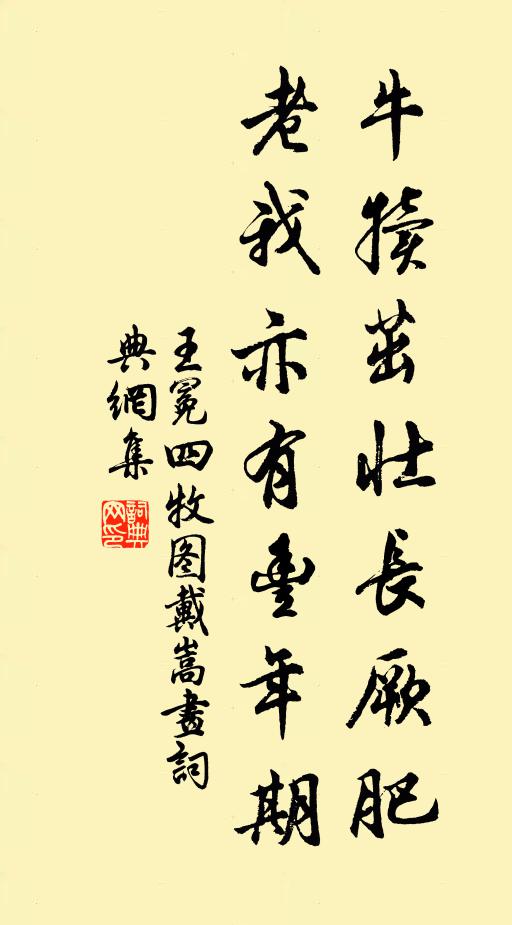 牛犢茁壯長厥肥
老我亦有豐年期
王冕四牧图戴嵩畫詞
典網集
詞典网印